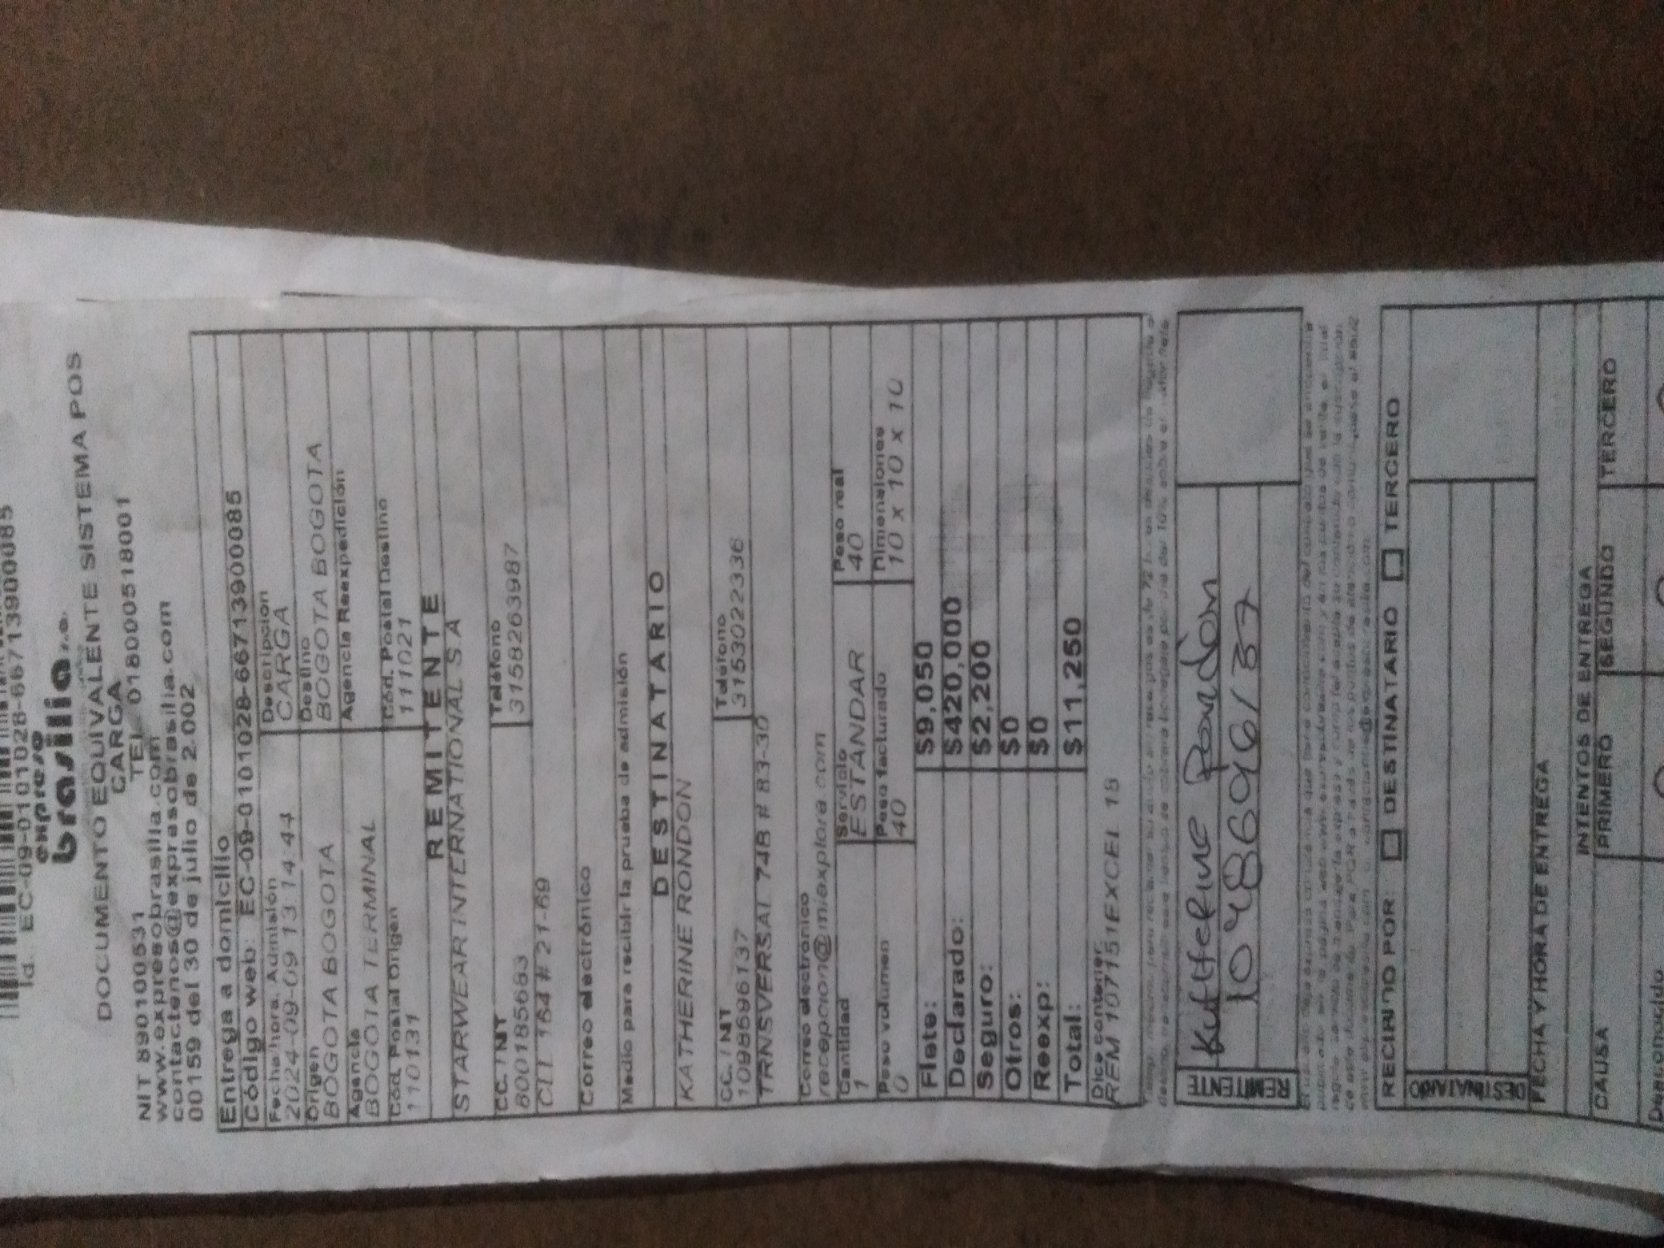 Id. EC-09-0101028-6671390085
expreso
brasilia S.A.
DOCUMENTO EQUIVALENTE SISTEMA POS
CARGA
NIT 890100531 TEL 018000518001
www.expresobrasilia.com
contactenos@expresobrasilia.com
00159 del 30 de julio de 2.002
Entrega a domicilio
Código web: EC-09-0101028-6671390085
Fecha/hora. Admisión Descripción
2024-09-09 13 14 44 CARGA
Origen Destino
BOGOTA BOGOTA BOGOTA BOGOTA
Agencia Agencia Reexpedición
BOGOTA TERMINAL
Cód. Postal Origen Cód. Postal Destino
110131 111021
REMITENTE
STARWEAR INTERNATIONAL S A
CC. / NT Teléfono
8001856833 3158263987
CLL 164 # 21-69
Correo electrónico
Medio para recibir la prueba de admisión
DESTINATARIO
KATHERINE RONDON
CC. / NT Teléfono
1098696137 3153022336
TRNSVERSAL 74B # 83-30
Correo electrónico
recepcion@miexplora.com
Cantidad Servicio Peso real
1 ESTANDAR 40
Peso volumen Peso facturado Dimensiones
0 40 10 x 10 x 10
Flete: $9,050
Declarado: $420,000
Seguro: $2,200
Otros: $0
Reexp: $0
Total: $11,250
Dice contener
REM 107151EXCEL 18
REMITENTE
1098696137
RECIBIDO POR: DESTINATARIO TERCERO
DESTINATARIO
FECHA Y HORA DE ENTREGA
INTENTOS DE ENTREGA
CAUSA PRIMERO SEGUNDO TERCERO
Desconocido